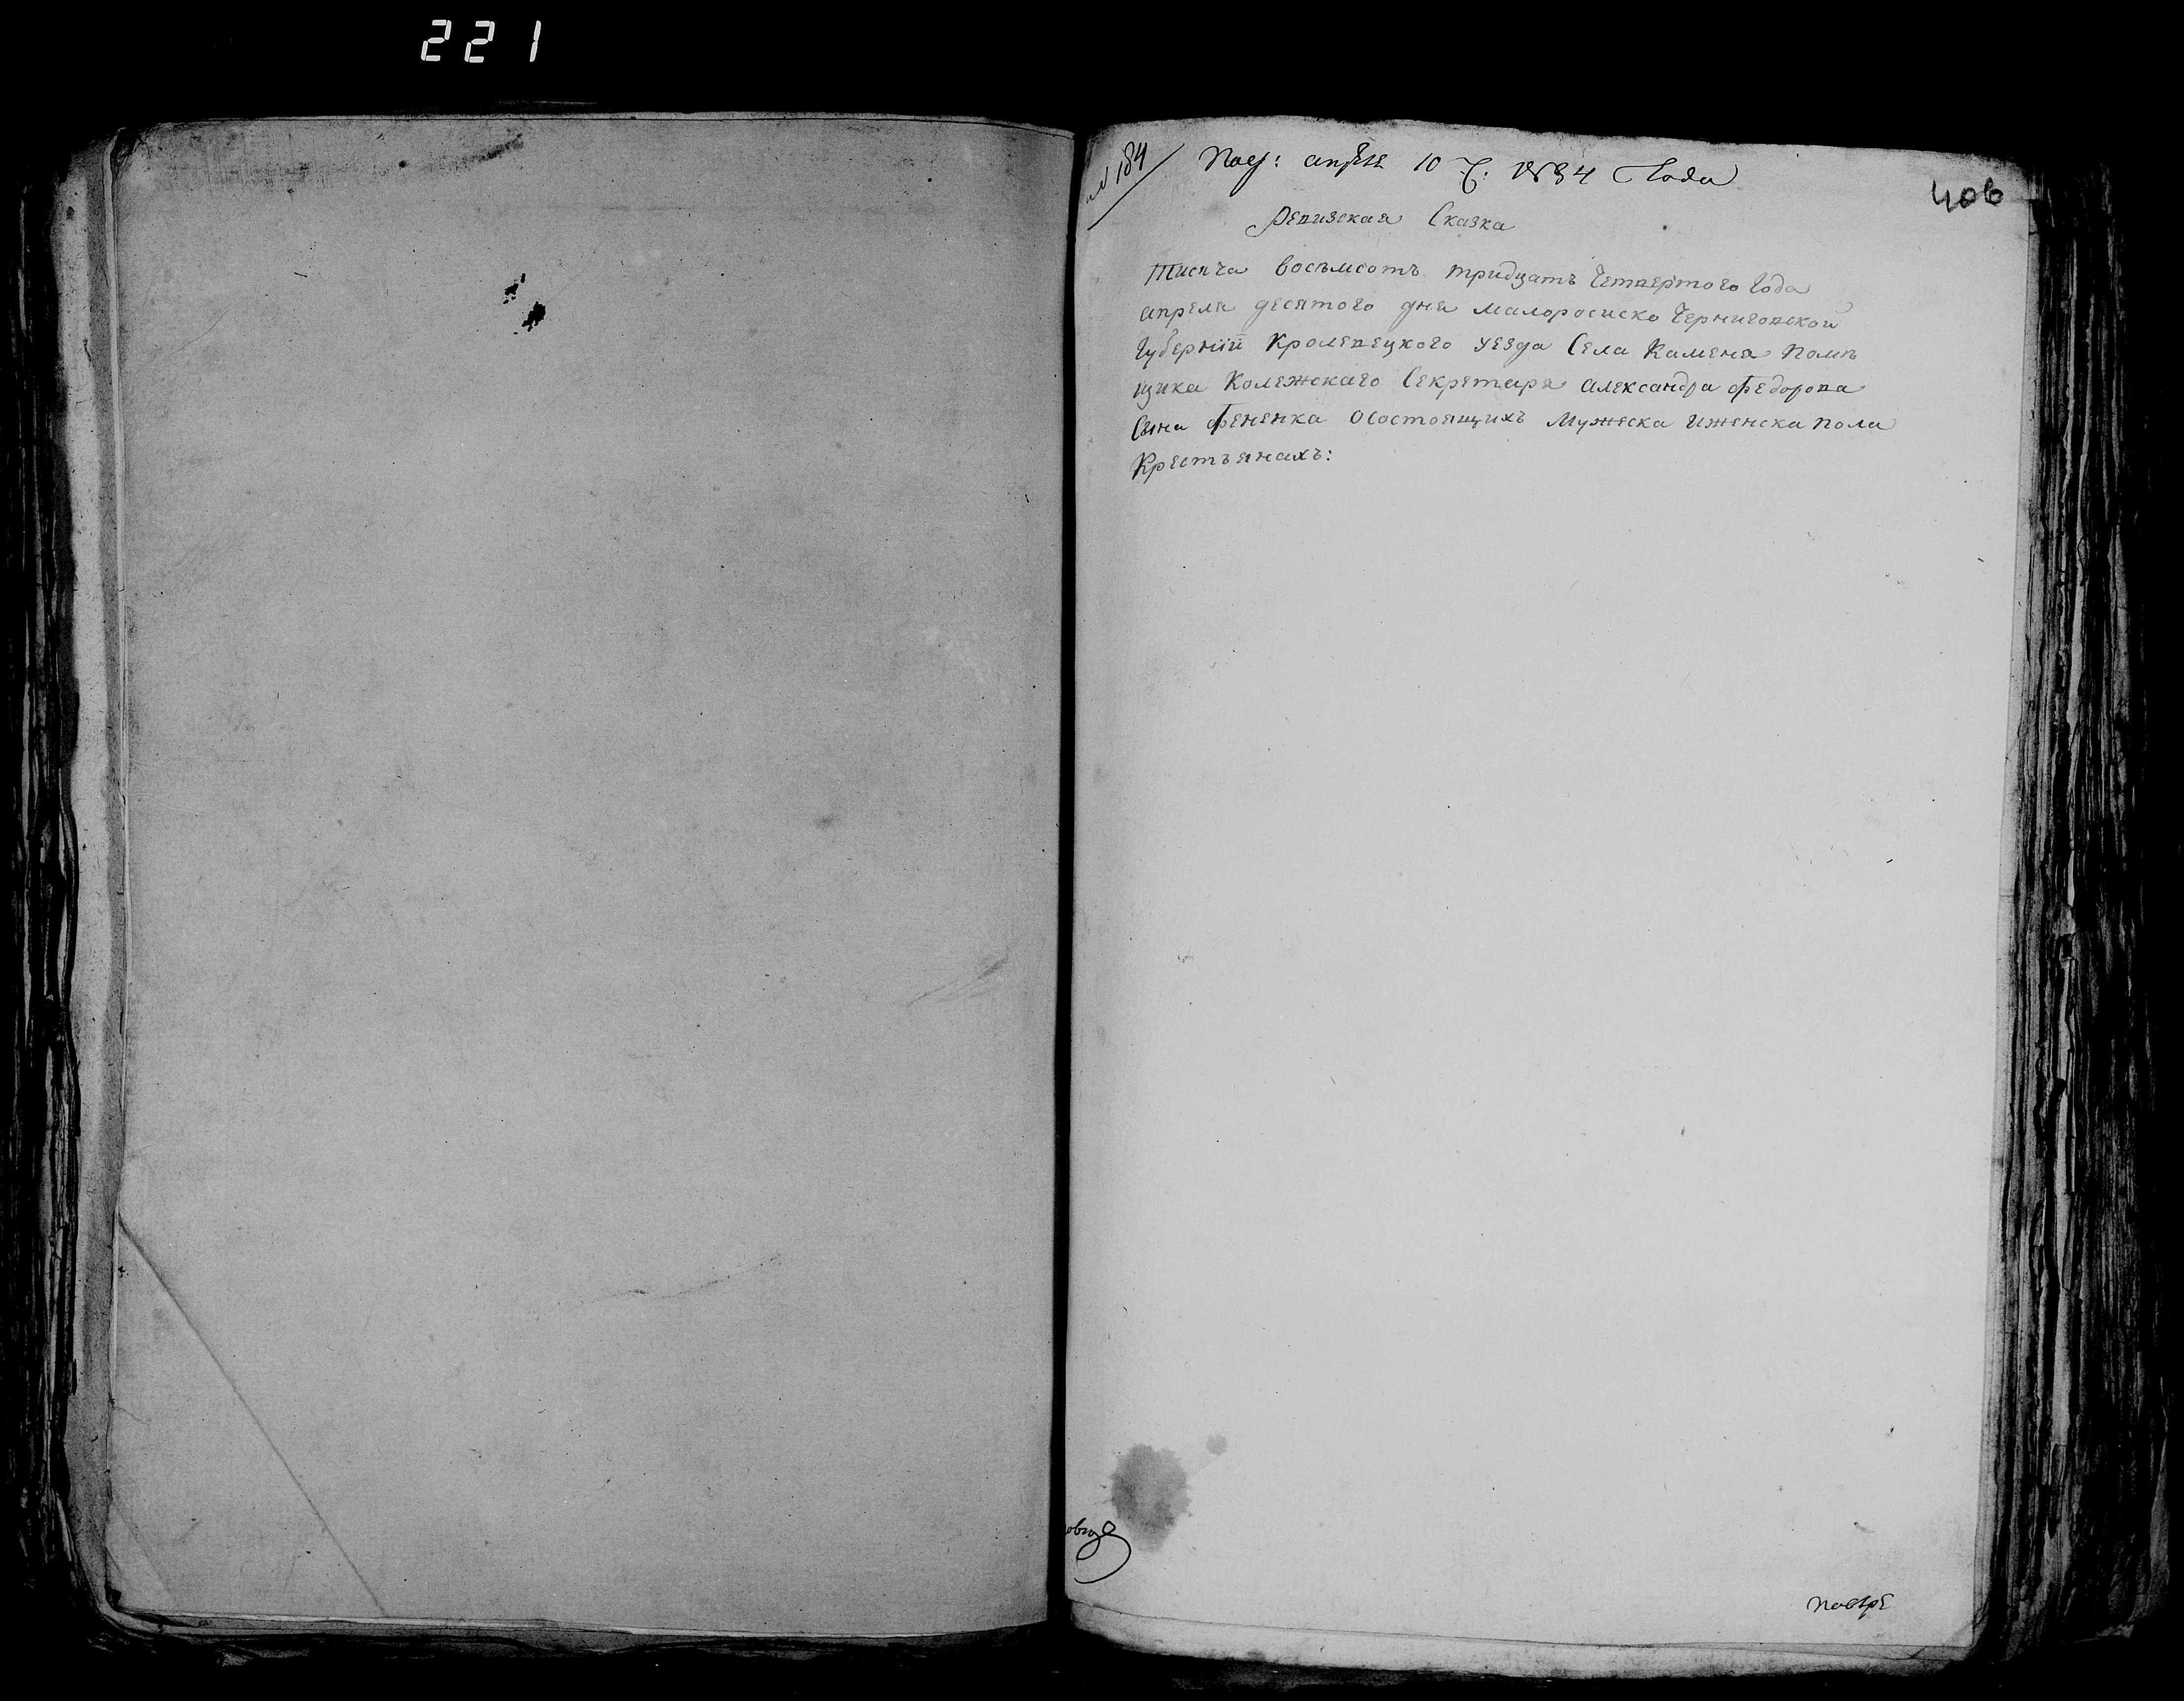 221
№ 184
Пол: апреля 10 ч. 1834 Года
406
Ревизская Сказка
Тисяча восъмсотъ тридцатъ Четвертого Года
апреля десятого дня малоросиско Черниговской
Губерніи Кролевецкого уезда Села Каменя помѣ
щика Колежскаго Секретаря александра Федорова
Сына Фененка Осостоящихъ Мужеска иженска пола
Крестъянахъ: